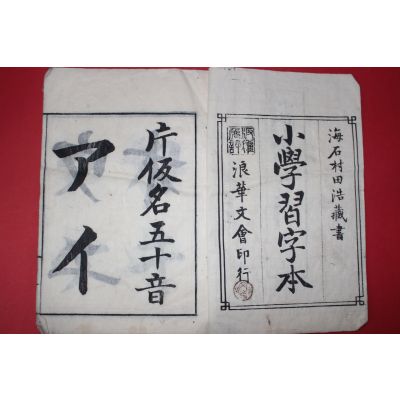 海石村田浩藏書
小學習字本
浪華文會印行
片仮名五十音
アイ